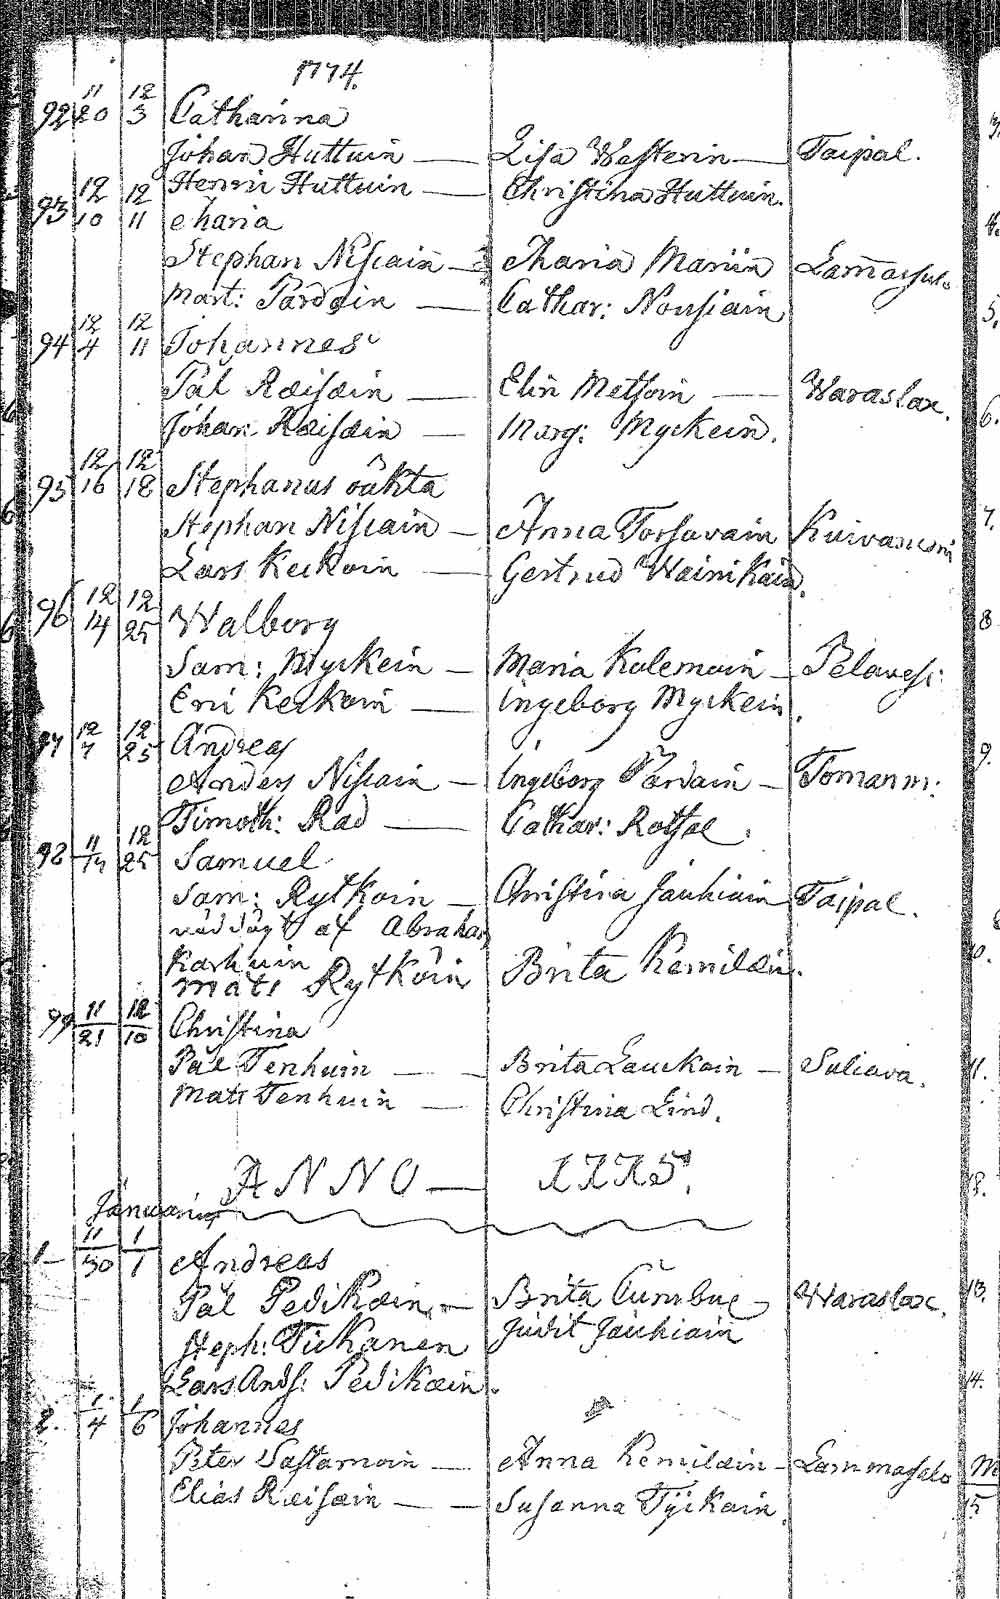 1774.
11 12
92 20 3 Catharina
Johan Huttuin — Lisa Westerin — Taipal.
Henric Huttuin — Christina Huttuin.
12 12
93 10 11 Maria
Stephan Nissain — Maria Mariin Lammassalo
Mart: Pardain — Cathar: Nousiain
12 12
94 4 11 Johannes
Pål Räisäin — Elin Metsoin — Waraslax.
Johan Räisäin — Marg: Myckein.
12 12
95 16 18 Stephanus oäkta
Stephan Nissain — Anna Torsavain Kuivaniemi
Lars Keckoin — Gertrud Wainikain.
12 12
96 14 25 Walborg
Sam: Myckein — Maria Kolemain — Pelavesi
Eric Keckoin — Ingeborg Myckein.
12 12
97 7 25 Andreas
Anders Nissain — Ingeborg Pardain — Tomanm:
Timoth: Räd — Cathar: Rotsal.
11 12
98 14 25 Samuel
Sam: Rytkoin — Christina Jauhiain Taipal.
af Abraham
Karhuin
Mats Rytköin Brita Kemiläin.
11 12
99 21 10 Christina
Pål Tenhuin — Brita Lauckain — Suliava.
Mats Tenhuin — Christina Lind.
ANNO — 1775.
Januarius
11 1
1 — 30 1 Andreas
Pål Pedikäin — Brita Cumbue — Waraslax.
Steph: Tickanen Judit Jauhiain
Lars Ands: Pedikäin.
1 1
2. 4 6 Johannes
Peter Sastamoin — Anna Kemiläin — Lammassalo
Elias Räisäin — Susanna Tyickain.